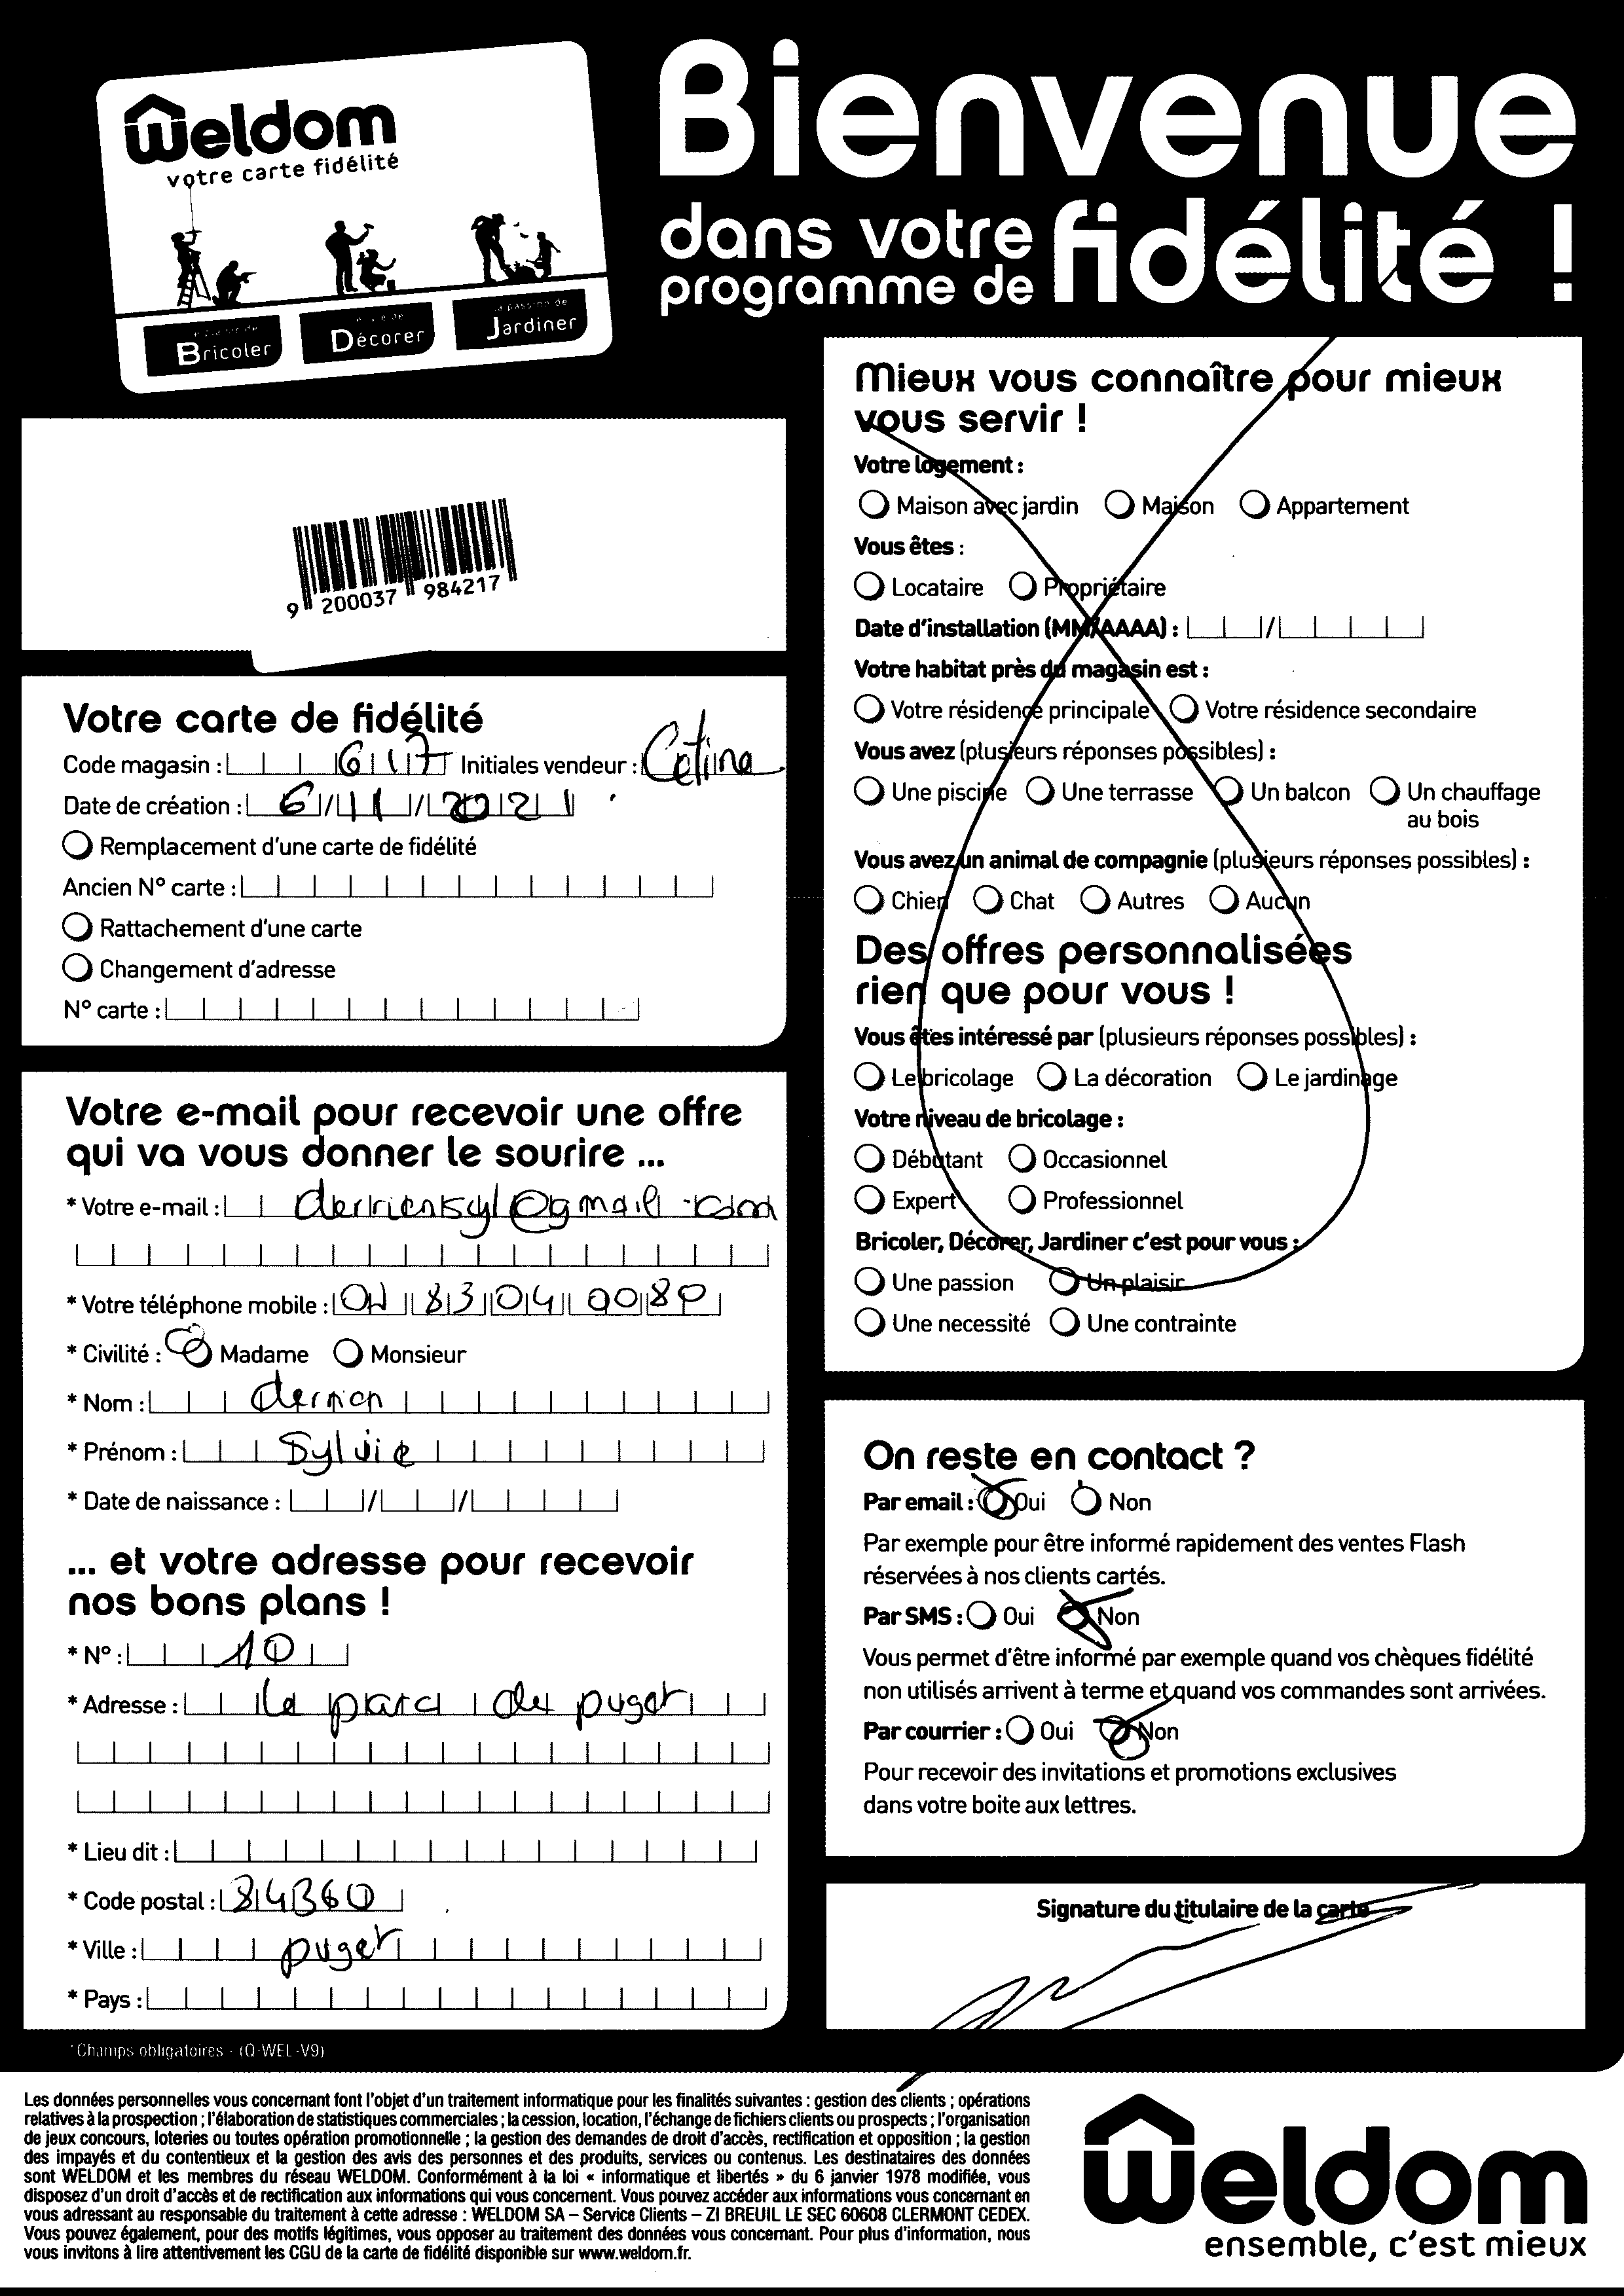 Weldom
votre carte fidélité
Bricoler
Décorer
la passion de
Jardiner
Bienvenue
dans votre
programme de fidélité !
9 200037 984217
Votre carte de fidélité
Code magasin : 617 Initiales vendeur :
Date de création : 6/11/2021
Remplacement d'une carte de fidélité
Ancien N° carte :
Rattachement d'une carte
Changement d'adresse
N° carte :
Votre e-mail pour recevoir une offre
qui va vous donner le sourire ...
* Votre e-mail : derriensyl@gmail.com
* Votre téléphone mobile :
* Civilité : Madame Monsieur
* Nom : derrien
* Prénom : Sylvie
* Date de naissance : / /
... et votre adresse pour recevoir
nos bons plans !
* N° : 10
* Adresse : le parc de puget
* Lieu dit :
* Code postal : 84360
* Ville : puget
* Pays :
*Champs obligatoires - (Q-WEL-V9)
Mieux vous connaître pour mieux
vous servir !
Votre logement :
Maison avec jardin Maison Appartement
Vous êtes :
Locataire Propriétaire
Date d'installation (MM/AAAA) : /
Votre habitat près du magasin est :
Votre résidence principale Votre résidence secondaire
Vous avez (plusieurs réponses possibles) :
Une piscine Une terrasse Un balcon Un chauffage
au bois
Vous avez un animal de compagnie (plusieurs réponses possibles) :
Chien Chat Autres Aucun
Des offres personnalisées
rien que pour vous !
Vous êtes intéressé par (plusieurs réponses possibles) :
Le bricolage La décoration Le jardinage
Votre niveau de bricolage :
Débutant Occasionnel
Expert Professionnel
Bricoler, Décorer, Jardiner c'est pour vous :
Une passion Un plaisir
Une necessité Une contrainte
On reste en contact ?
Par email : Oui Non
Par exemple pour être informé rapidement des ventes Flash
réservées à nos clients cartés.
Par SMS : Oui Non
Vous permet d'être informé par exemple quand vos chèques fidélité
non utilisés arrivent à terme et quand vos commandes sont arrivées.
Par courrier : Oui Non
Pour recevoir des invitations et promotions exclusives
dans votre boite aux lettres.
Signature du titulaire de la carte
Les données personnelles vous concernant font l'objet d'un traitement informatique pour les finalités suivantes : gestion des clients ; opérations
relatives à la prospection ; l'élaboration de statistiques commerciales ; la cession, location, l'échange de fichiers clients ou prospects ; l'organisation
de jeux concours, loteries ou toutes opération promotionnelle ; la gestion des demandes de droit d'accès, rectification et opposition ; la gestion
des impayés et du contentieux et la gestion des avis des personnes et des produits, services ou contenus. Les destinataires des données
sont WELDOM et les membres du réseau WELDOM. Conformément à la loi « informatique et libertés » du 6 janvier 1978 modifiée, vous
disposez d'un droit d'accès et de rectification aux informations qui vous concernent. Vous pouvez accéder aux informations vous concernant en
vous adressant au responsable du traitement à cette adresse : WELDOM SA – Service Clients – ZI BREUIL LE SEC 60608 CLERMONT CEDEX.
Vous pouvez également, pour des motifs légitimes, vous opposer au traitement des données vous concernant. Pour plus d'information, nous
vous invitons à lire attentivement les CGU de la carte de fidélité disponible sur www.weldom.fr.
Weldom
ensemble, c'est mieux